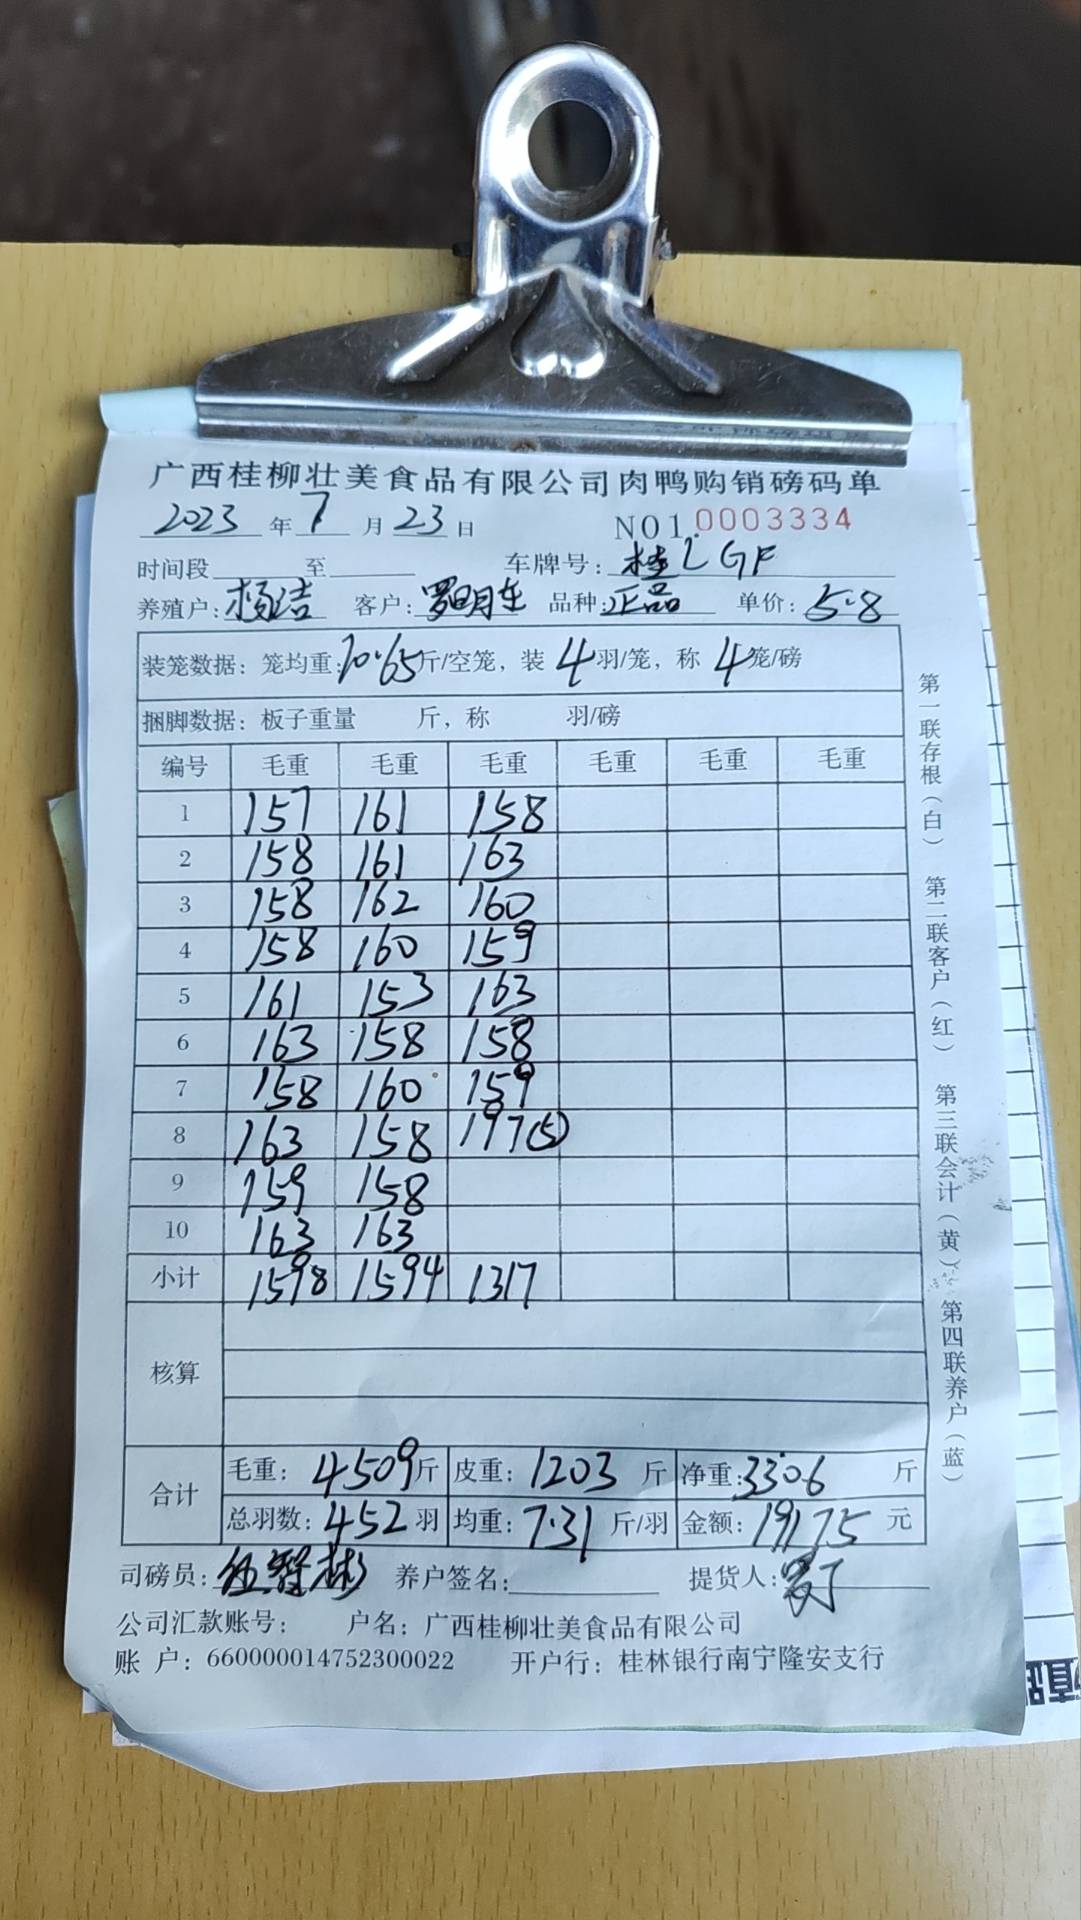 广西桂柳壮美食品有限公司肉鸭购销磅码单
2023年7月23日 NO1.0003334
时间段 至 车牌号:桂LGF
养殖户:杨洁 客户:罗明东 品种:正品 单价:5.8
装笼数据:笼均重:10.65斤/空笼,装4羽/笼,称4笼/磅
捆脚数据:板子重量 斤,称 羽/磅
编号 毛重 毛重 毛重 毛重 毛重 毛重
1 157 161 158
2 158 161 163
3 158 162 160
4 158 160 159
5 161 153 163
6 163 158 158
7 158 160 159
8 163 158 197(5)
9 159 158
10 163 163
小计 1598 1594 1317
核算
合计
毛重:4509斤 皮重:1203斤 净重:3306斤
总羽数:452羽 均重:7.31斤/羽 金额:19175元
司磅员:伍智彬 养户签名: 提货人:
公司汇款账号: 户名:广西桂柳壮美食品有限公司
账 户:660000014752300022 开户行:桂林银行南宁隆安支行
第一联存根(白) 第二联客户(红) 第三联会计(黄) 第四联养户(蓝)